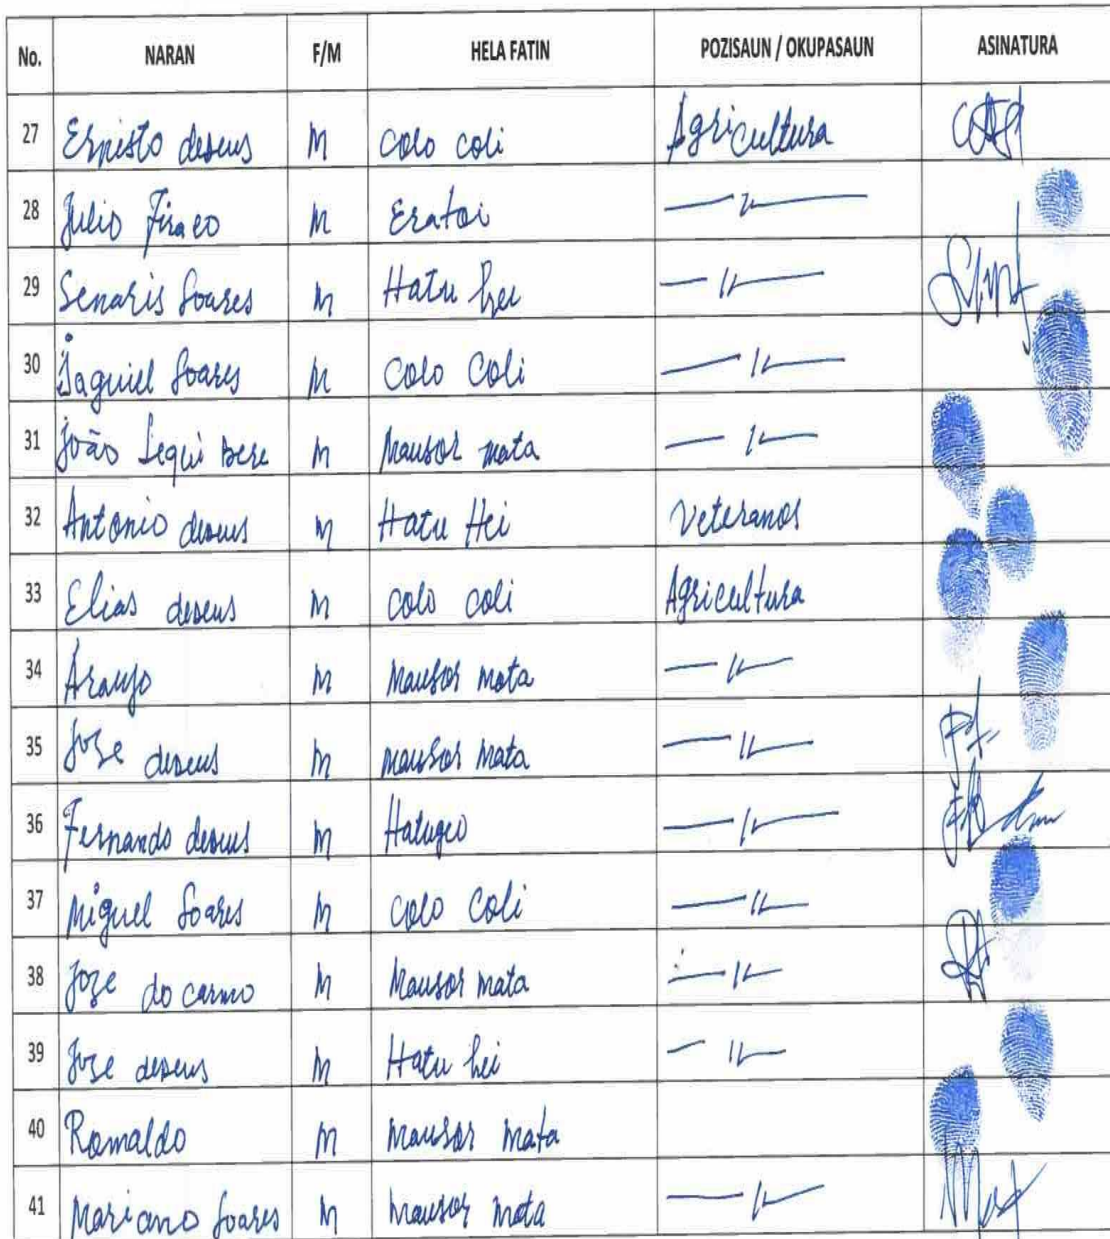 No. NARAN F/M HELA FATIN POZISAUN / OKUPASAUN ASINATURA
27 Ernisto deseus M Colo coli Agricultura
28 Julio Firaco M Eratoi —〃—
29 Senaris Soares M Hatu hei —〃—
30 Jaguiel Soares M Colo Coli —〃—
31 João Lequi Bere M Mausor mata —〃—
32 Antonio deseus M Hatu Hei Veteranos
33 Elias deseus M colo coli Agricultura
34 Araujo M Mausor mata —〃—
35 Joze deseus M mausor mata —〃—
36 Fernando deseus M Hatugeo —〃—
37 Miguel Soares M colo Coli —〃—
38 Joze do carmo M Mausor mata —〃—
39 Joze deseus M Hatu hei —〃—
40 Romaldo M mausor mata
41 Mariano Soares M mausor mata —〃—